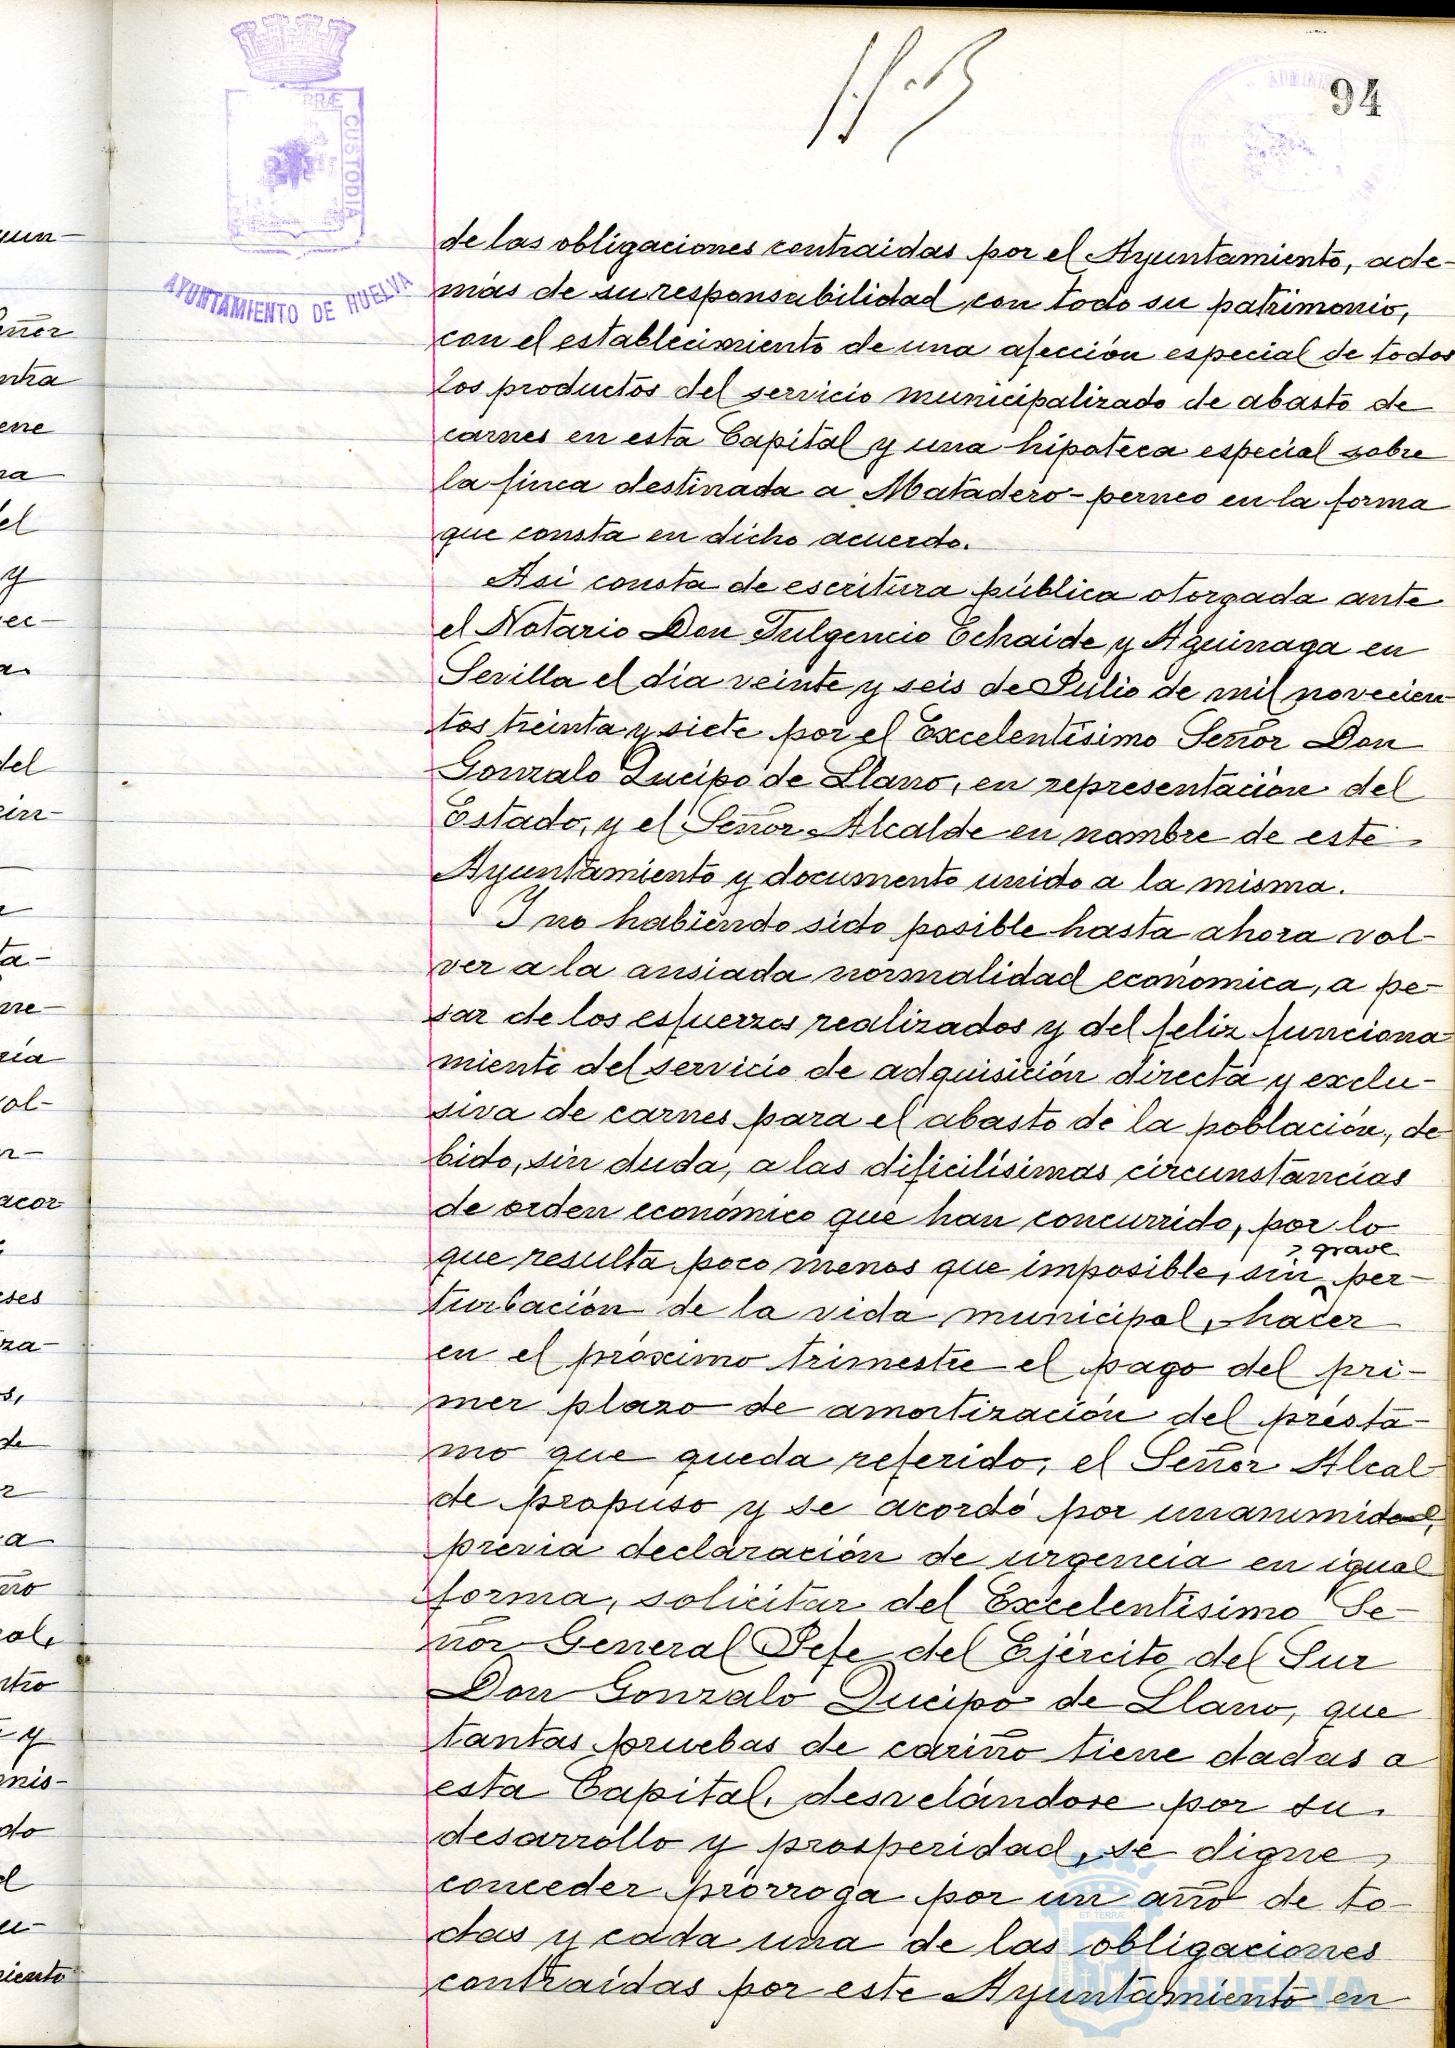 94
TERRÆ CUSTODIA
AYUNTAMIENTO DE HUELVA
ADMINIS
de las obligaciones contraidas por el Ayuntamiento, ade-
más de su responsabilidad con todo su patrimonio,
con el establecimiento de una afección especial de todos
los productos del servicio municipalizado de abasto de
carnes en esta Capital y una hipoteca especial sobre
la finca destinada a Matadero-perneo en la forma
que consta en dicho acuerdo.
Asi consta de escritura pública otorgada ante
el Notario Don Fulgencio Echaide y Aguinaga en
Sevilla el día veinte y seis de Julio de mil novecien-
tos treinta y siete por el Excelentísimo Señor Don
Gonzalo Queipo de Llano, en representación del
Estado, y el Señor Alcalde en nombre de este
Ayuntamiento y documento unido a la misma.
Y no habiendo sido posible hasta ahora vol-
ver a la ansiada normalidad económica, a pe-
sar de los esfuerzos realizados y del feliz funciona-
miento del servicio de adquisición directa y exclu-
siva de carnes para el abasto de la población, de
bido, sin duda, a las dificilísimas circunstancias
de orden económico que han concurrido, por lo
que resulta poco menos que imposible, sin grave per-
turbación de la vida municipal, hacer
en el próximo trimestre el pago del pri-
mer plazo de amortización del présta-
mo que queda referido, el Señor Alcal
de propuso y se acordó por unanimidad,
previa declaración de urgencia en igual
forma, solicitar del Excelentísimo Se-
ñor General Jefe del Ejército del Sur
Don Gonzalo Queipo de Llano, que
tantas pruebas de cariño tiene dadas a
esta Capital, desvelándose por su
desarrollo y prosperidad, se digne
conceder prórroga por un año de to-
das y cada una de las obligaciones
contraídas por este Ayuntamiento en
Ayuntamiento
HUELVA